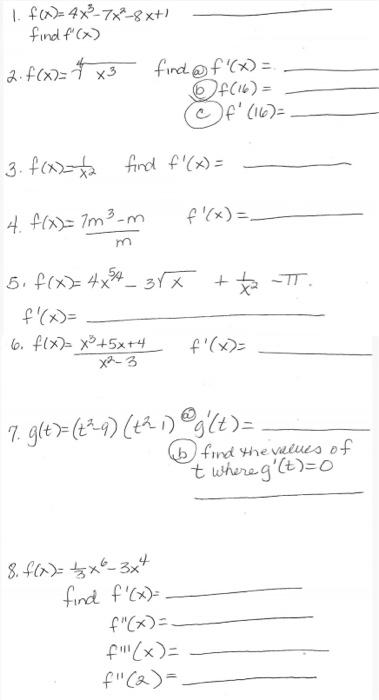 1. f(x)=4x³-7x²-8x+1 ____
find f'(x)
2. f(x)=⁴√x³ find ⓐ f'(x)= ____
ⓑ f(16)= ____
ⓒ f'(16)= ____
3. f(x)=1/x² find f'(x)= ____
4. f(x)= 7m³-m/m f'(x)= ____
5. f(x)= 4x^5/4 - 3√x + 1/x² - π.
f'(x)= ____
6. f(x)= x³+5x+4/x²-3 f'(x)= ____
7. g(t)=(t²-9)(t²-1) ⓐ g'(t)= ____
ⓑ find the values of
t where g'(t)=0
____
8. f(x)= 1/3x⁶-3x⁴
find f'(x)= ____
f''(x)= ____
f'''(x)= ____
f''(2)= ____